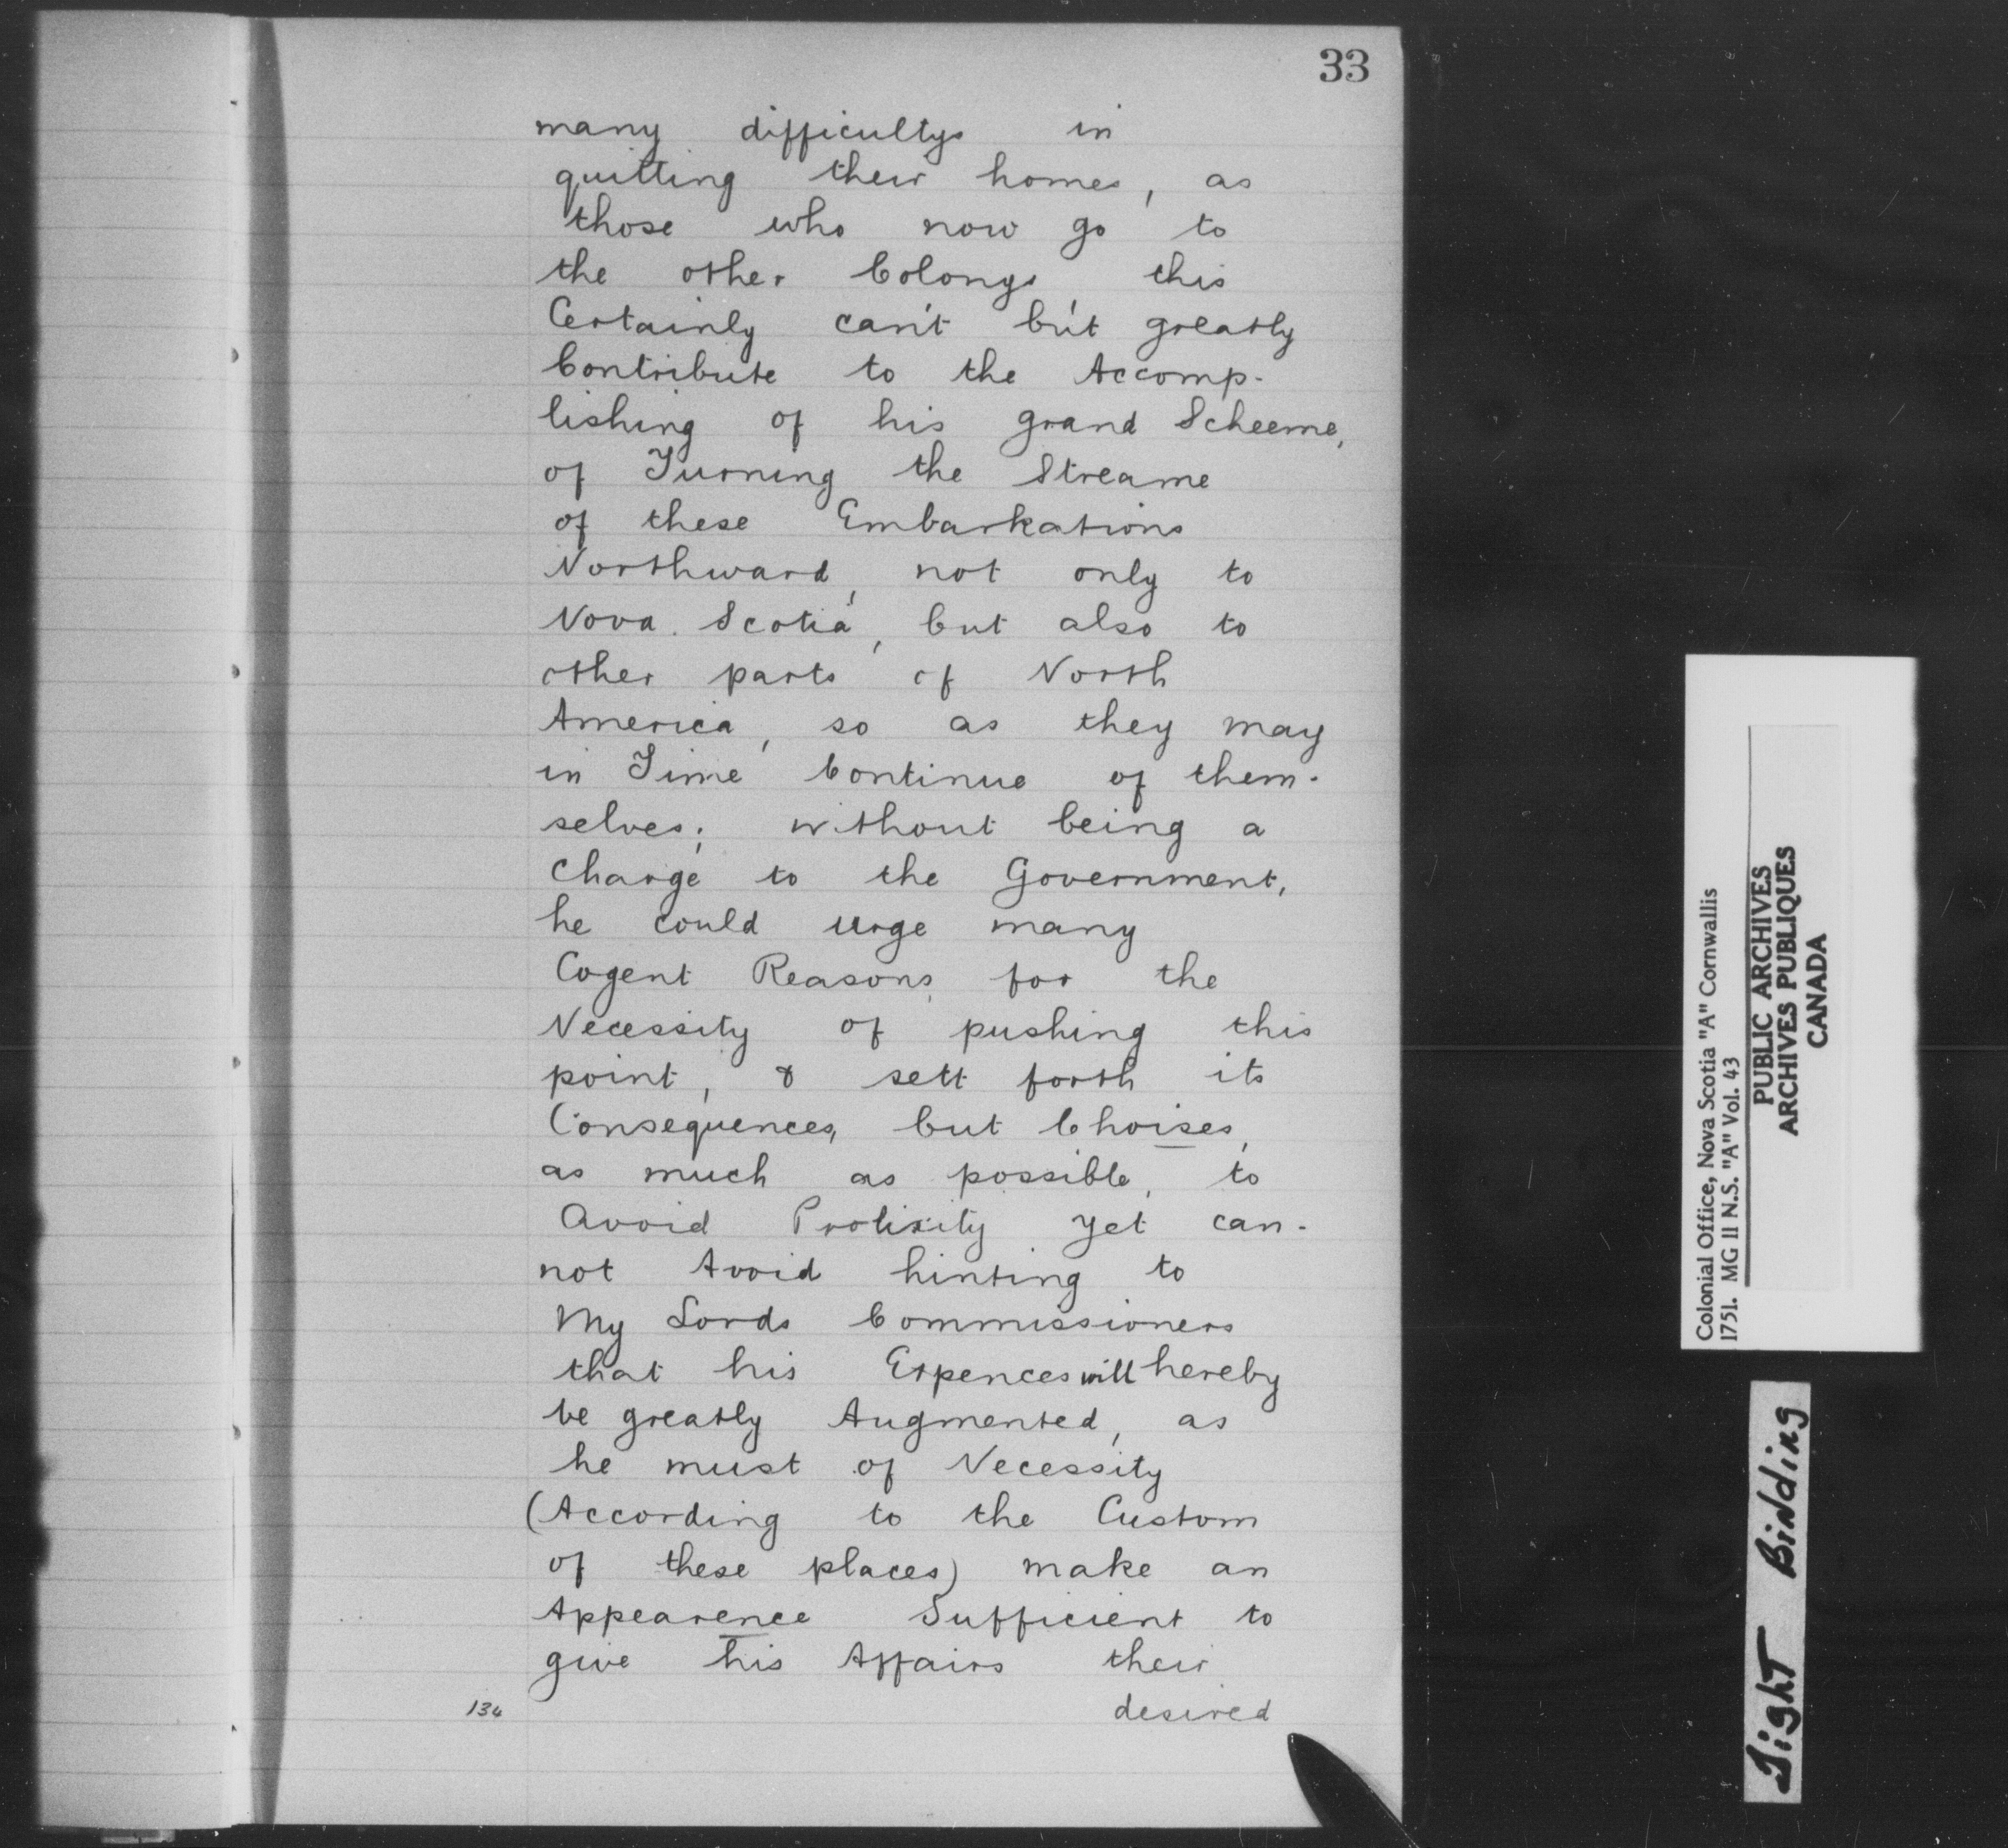 33
many difficultys in
quitting their homes, as
those who now go to
the other Colonys, this
Certainly can't but greatly
Contribute to the Accomp-
lishing of his grand Scheeme,
of Turning the Streame
of these Embarkations
Northward, not only to
Nova Scotia, but also to
other parts of North
America, so as they may
in Time Continue of them-
selves; without being a
Charge to the Government,
he could urge many
Cogent Reasons for the
Necessity of pushing this
point, & sett forth its
Consequences, but Choises,
as much as possible, to
Avoid Prolixity yet can-
not Avoid hinting to
My Lords Commissioners
that his Expences will hereby
be greatly Augmented, as
he must of Necessity
(According to the Custom
of these places) make an
Appearence Sufficient to
give his Affairs their
134 desired
Colonial Office, Nova Scotia "A" Cornwallis
1751. MG 11 N.S. "A" Vol. 43
PUBLIC ARCHIVES
ARCHIVES PUBLIQUES
CANADA
Tight Binding